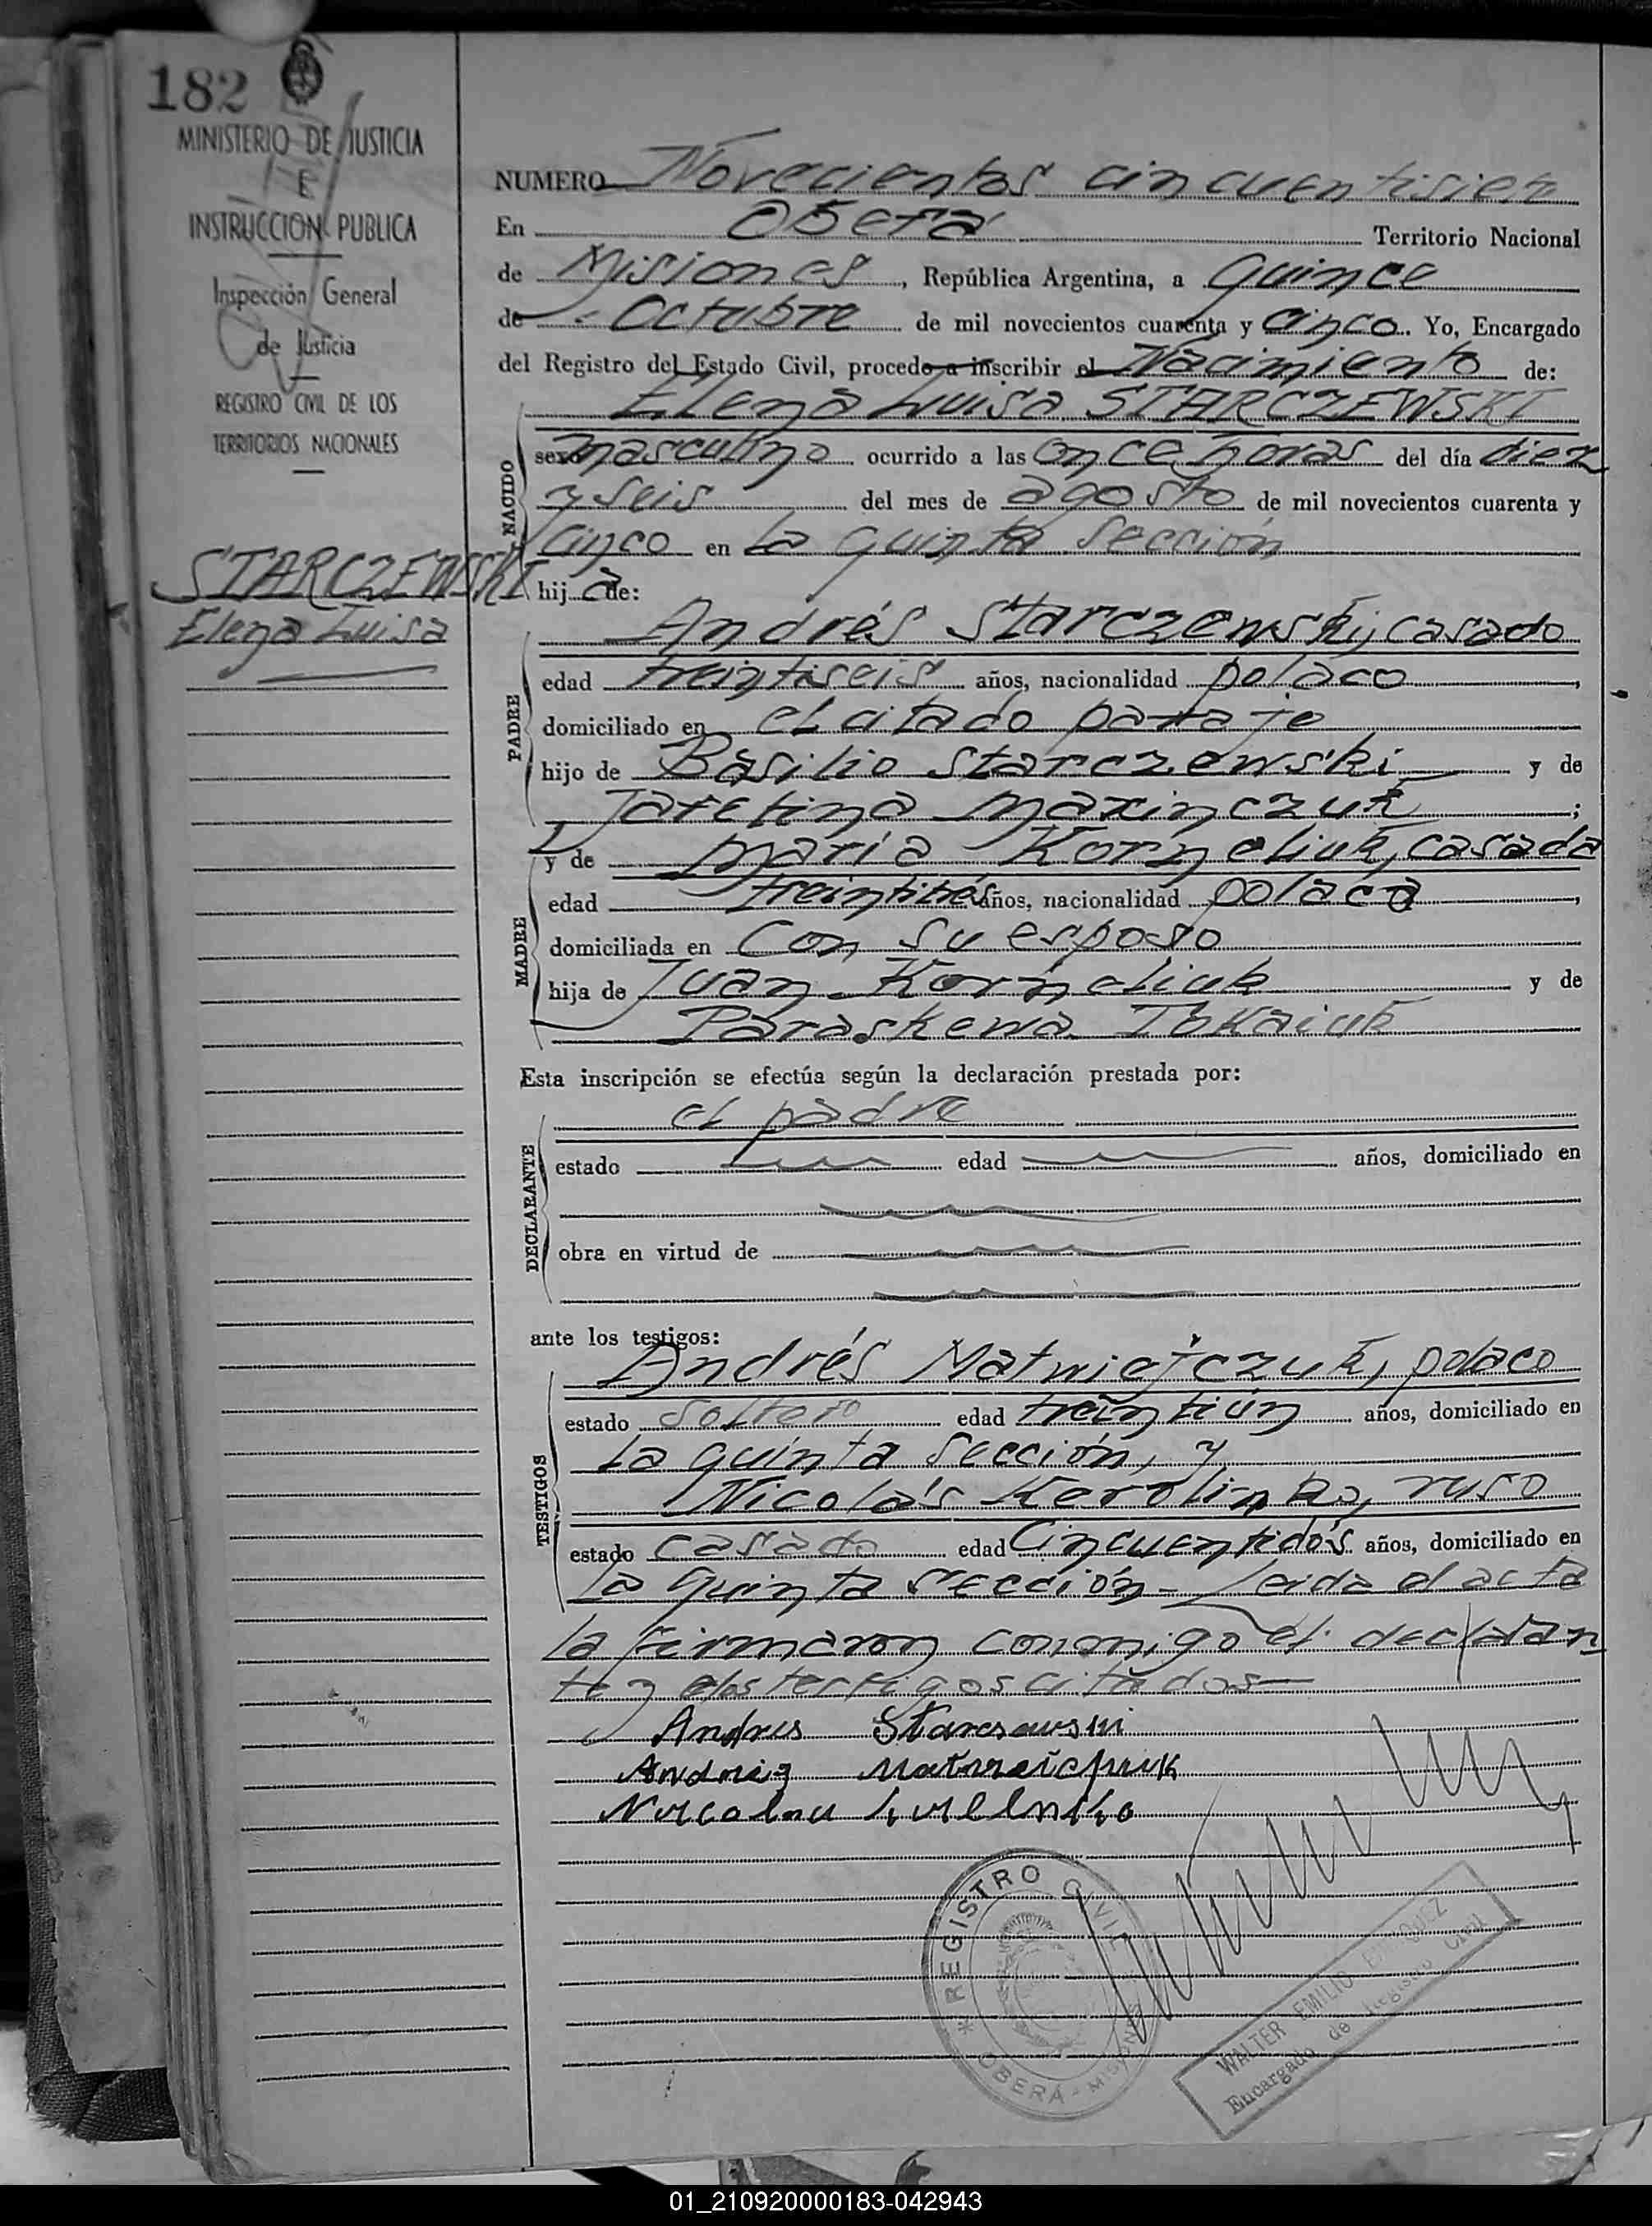 182
MINISTERIO DE JUSTICIA
E
INSTRUCCION PUBLICA
Inspección General
de Justicia
REGISTRO CIVIL DE LOS
TERRITORIOS NACIONALES
STARCZEWSKI
Elena Luisa
NUMERO Novecientos cincuentisiete
En Oberá Territorio Nacional
de Misiones, República Argentina, a quince
de Octubre de mil novecientos cuarenta y cinco. Yo, Encargado
del Registro del Estado Civil, procedo a inscribir el Nacimiento de:
Elena Luisa STARCZEWSKI
NACIDO
sexo masculino ocurrido a las once horas del día diez
y seis del mes de agosto de mil novecientos cuarenta y
cinco en la quinta sección
hija de:
Andrés Starczewski, casado
PADRE
edad treintiseis años, nacionalidad polaco,
domiciliado en el citado paraje
hijo de Basilio Starczewski y de
Jafetina Maxinczuk;
y de María Korneliuk, casada
MADRE
edad treintitrés años, nacionalidad polaca,
domiciliada en con su esposo
hija de Juan Korneliuk y de
Paraskewa Tokaiuk
Esta inscripción se efectúa según la declaración prestada por:
el padre
DECLARANTE
estado edad años, domiciliado en
obra en virtud de
ante los testigos:
Andrés Matwiejczuk, polaco
TESTIGOS
estado soltero edad treintiún años, domiciliado en
la quinta sección, y
Nicolás Kerolinko, ruso
estado casado edad cincuentidós años, domiciliado en
la quinta sección - Leida el acta
la firmaron conmigo el declaran
te y los testigos citados
Andres
Andreij
REGISTRO CIVIL
OBERÁ - MISIONES
WALTER EMILIO ENRIQUEZ
Encargado de Registro Civil
01_210920000183-042943